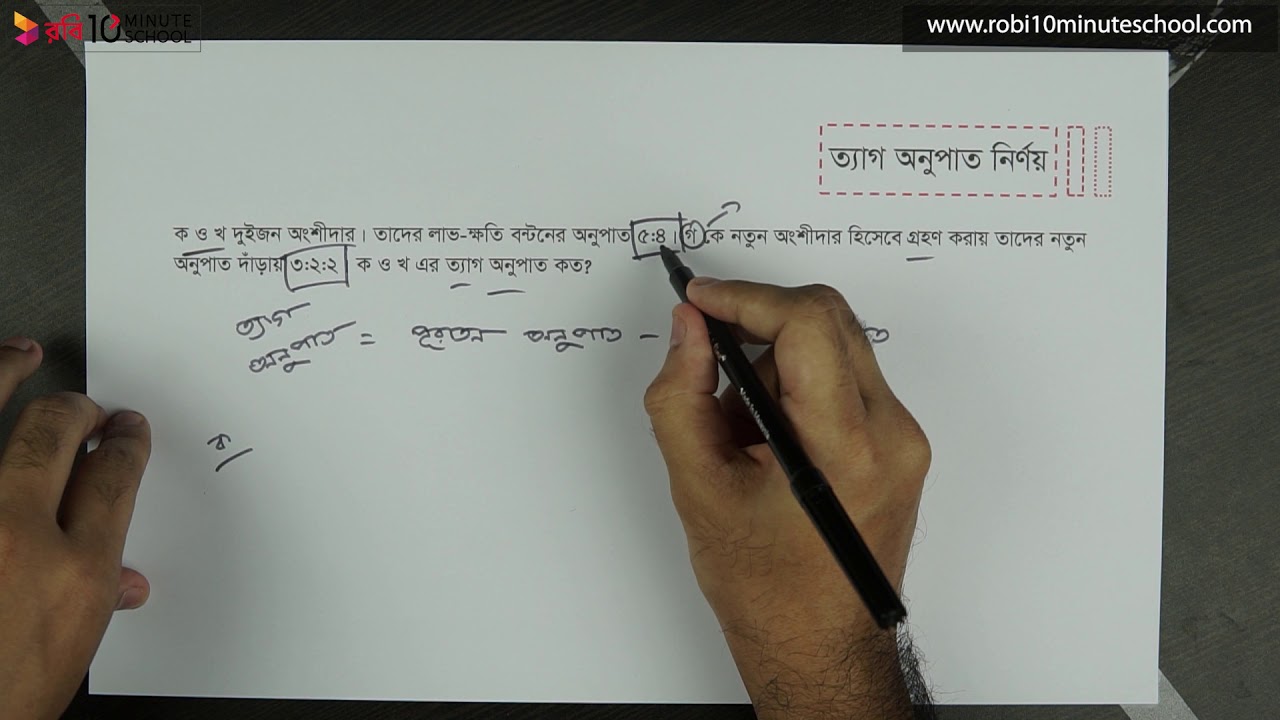 রবি 10 MINUTE SCHOOL
www.robi10minuteschool.com
ত্যাগ অনুপাত নির্ণয়
ক ও খ দুইজন অংশীদার। তাদের লাভ-ক্ষতি বন্টনের অনুপাত ৫:৪। গ কে নতুন অংশীদার হিসেবে গ্রহণ করায় তাদের নতুন
অনুপাত দাঁড়ায় ৩:২:২ ক ও খ এর ত্যাগ অনুপাত কত?
ত্যাগ
অনুপাত = পূরতন অনুপাত –
ক